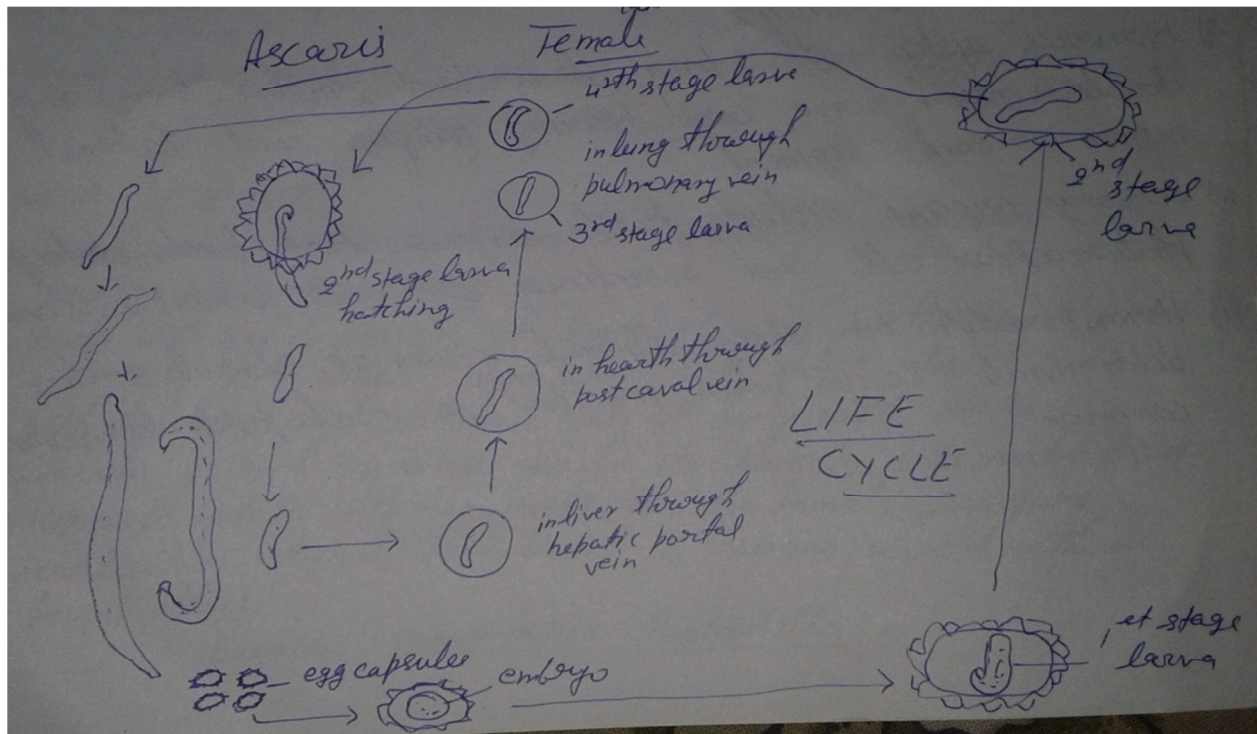 Ascaris
Female
4rth stage larva
in lung through
pulmonary vein
3rd stage larva
2nd
stage
larva
2nd stage larva
hatching
in hearth through
postcaval vein
LIFE
CYCLE
in liver through
hepatic portal
vein
egg capsules
embryo
1st stage
larva